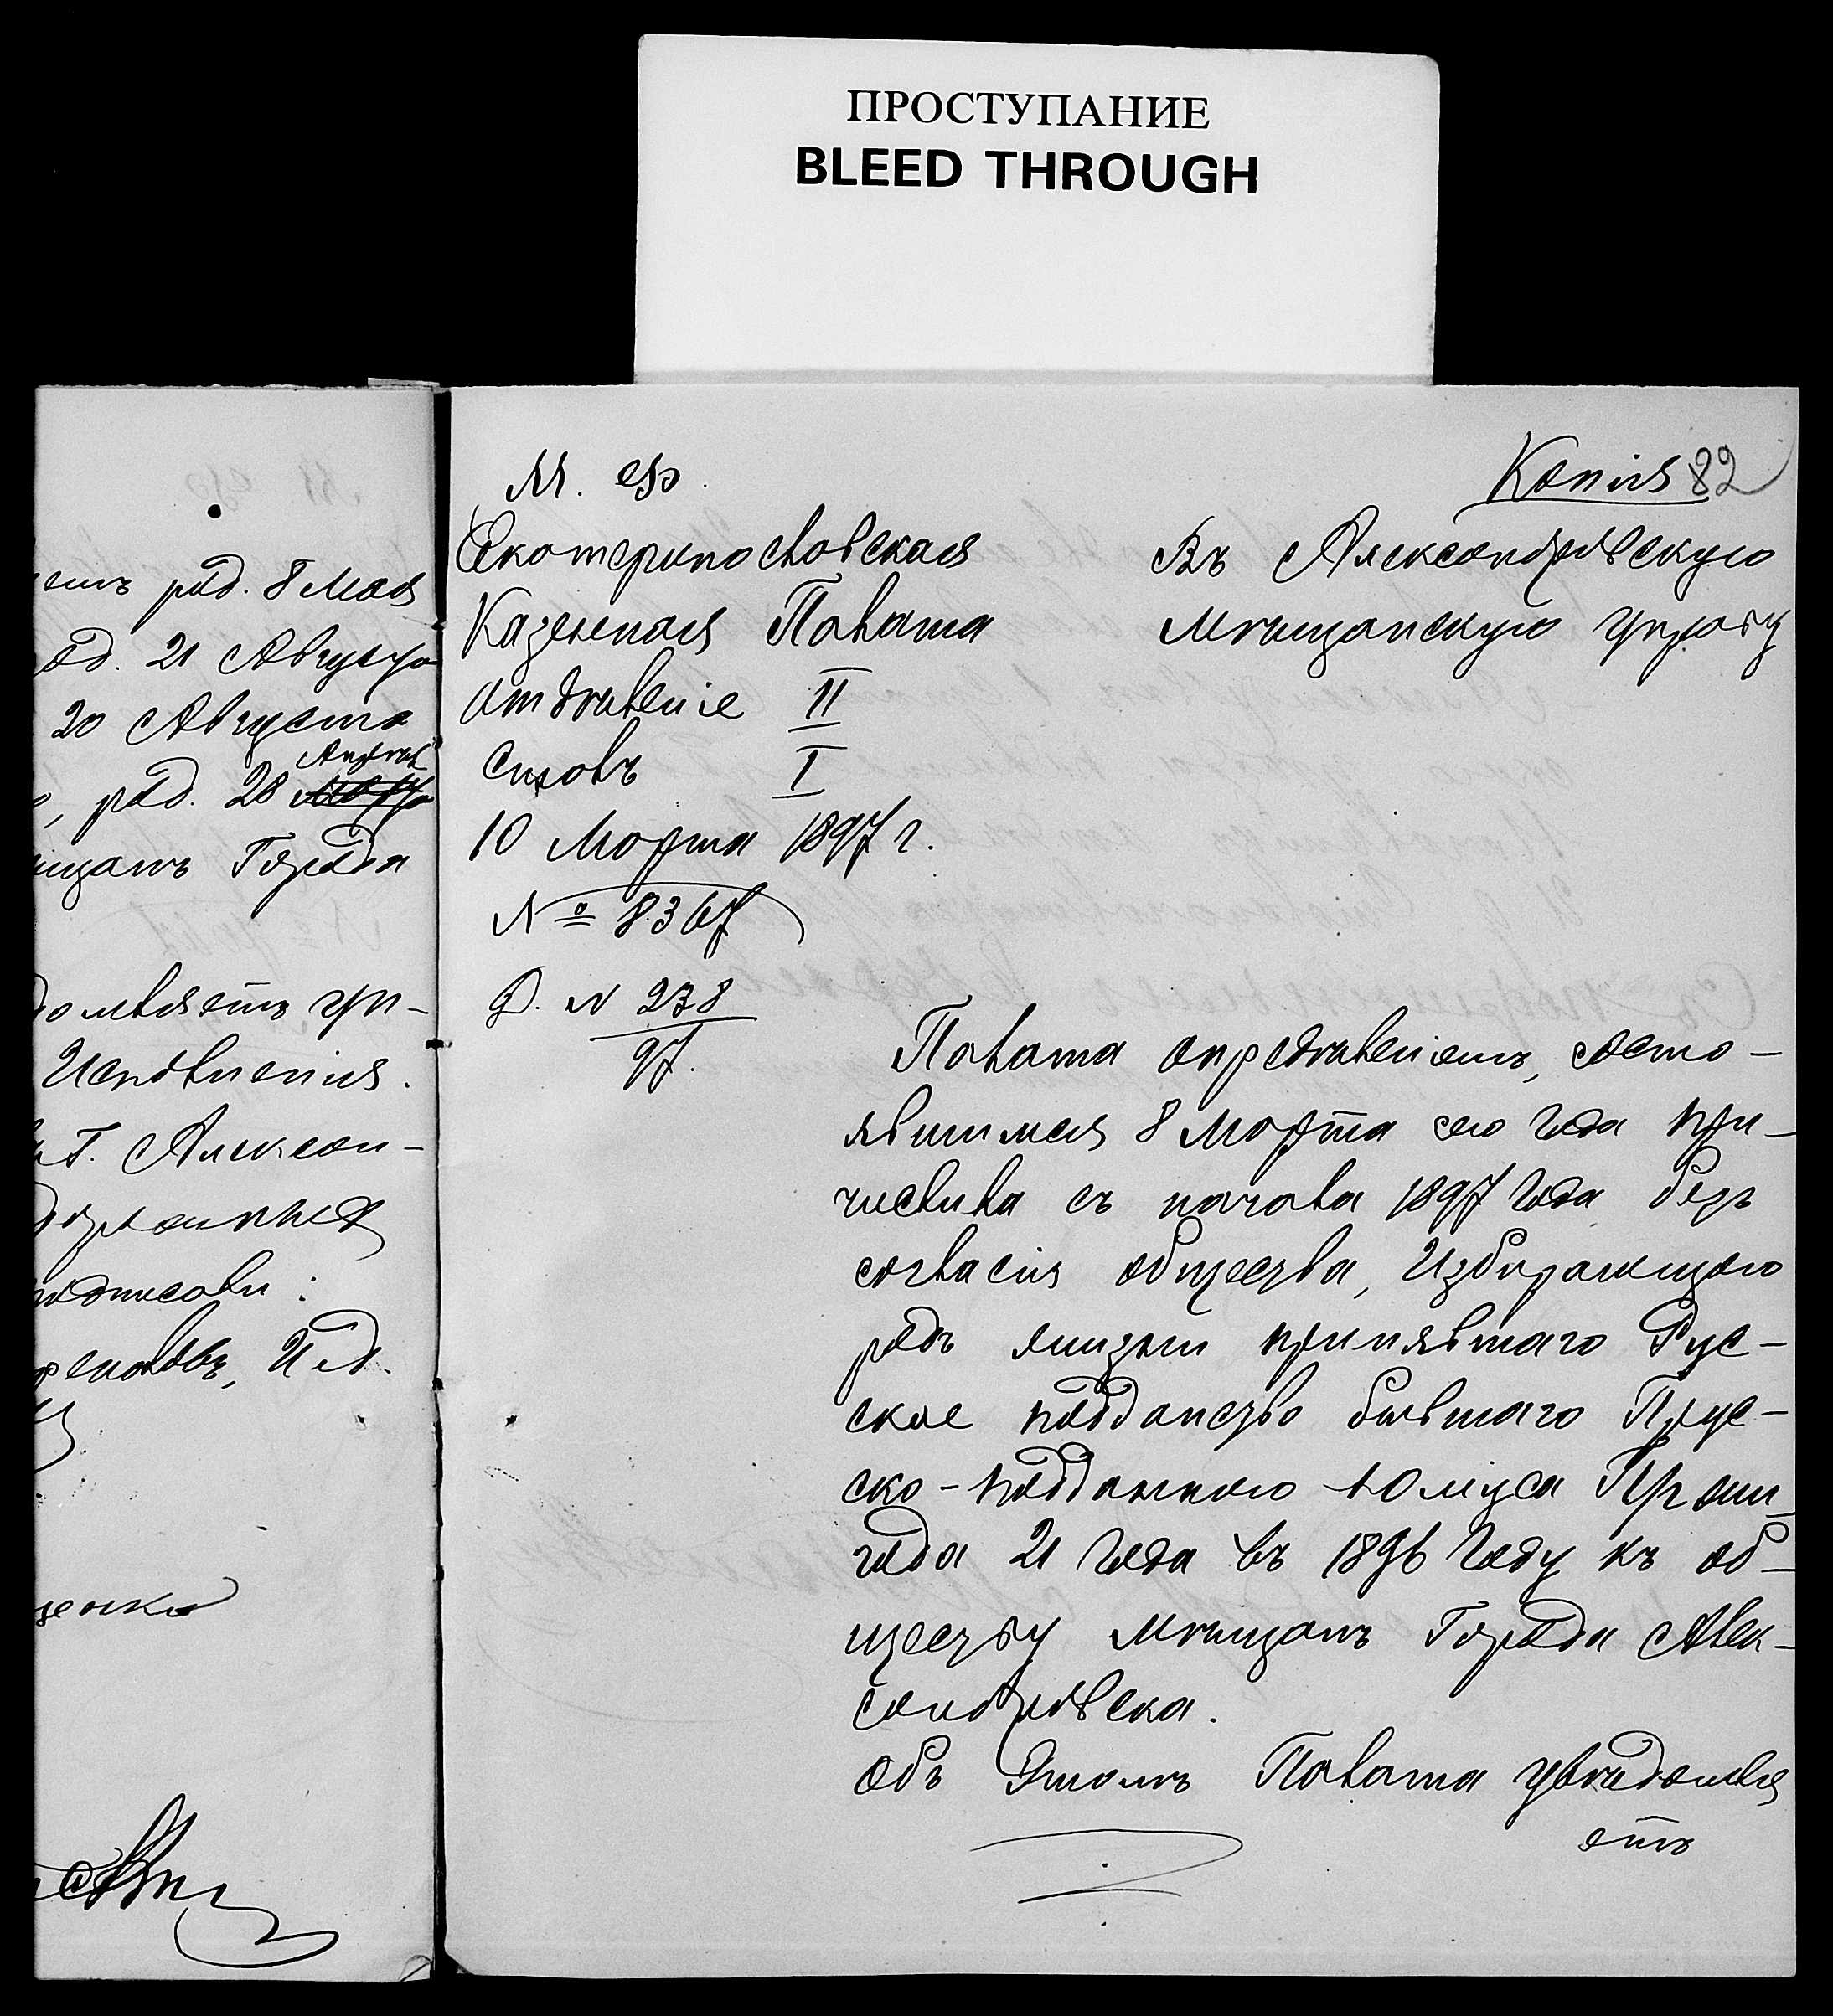 ПРОСТУПАНИЕ
BLEED THROUGH
род. 8 Мая
21 Августа
20 Августа
Апреля
род. 28 Марта
Города
уп-
Исполнения.
Г. Алексан-
подписали:
М. Ф.
Копія 82
Екатеринославская
Казенная Палата
Отделеніе II
Столъ I
10 Марта 1897 г.
№ 8367
Д. № 238
97.
Въ Александровскую
Мѣщанскую управу
Палата опредѣленіемъ, состо-
явшимся 8 Марта сего года при-
числила съ начала 1897 года безъ
согласія общества, Избирающаго
родъ жизни принявшаго Рус-
ское подданство бывшаго Прус-
ско-подданнаго Юлиуса
21 года въ 1896 году къ об-
ществу мѣщанъ Города Алек-
сандровска.
Объ этомъ Палата увѣдомля
етъ